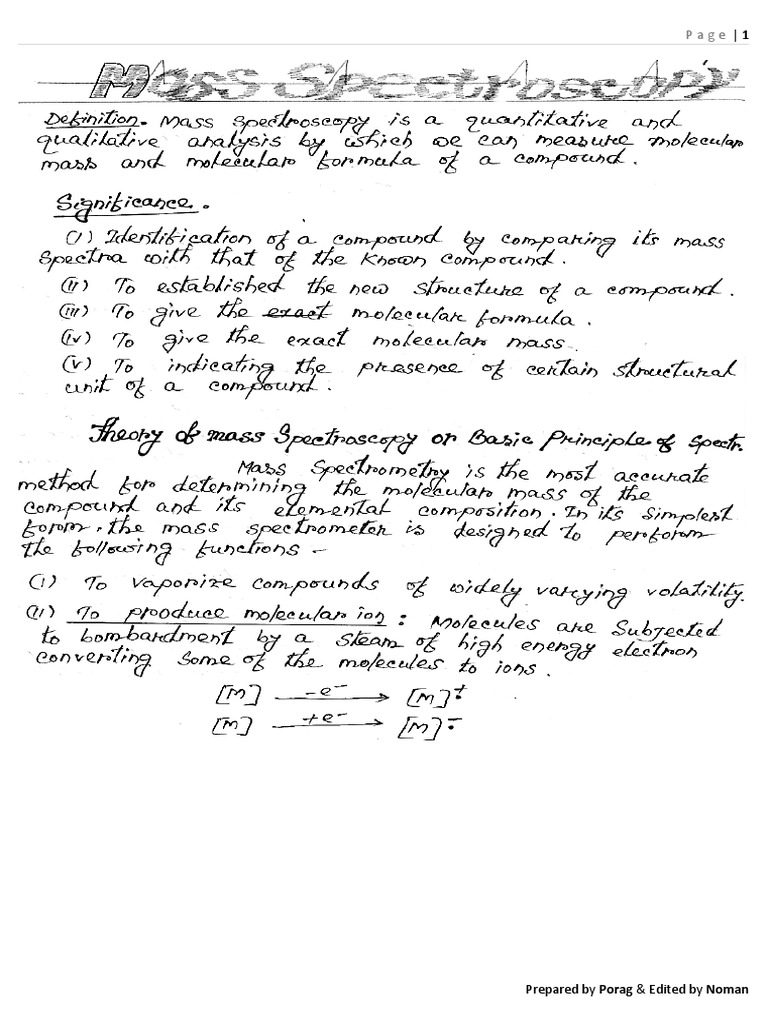 Page | 1
Mass Spectroscopy
Definition. Mass spectroscopy is a quantitative and
qualitative analysis by which we can measure molecular
mass and molecular formula of a compound.
Significance.
(i) Identification of a compound by comparing its mass
spectra with that of the known compound.
(ii) To established the new structure of a compound.
(iii) To give the exact molecular formula.
(iv) To give the exact molecular mass.
(v) To indicating the presence of certain structural
unit of a compound.
Theory of mass Spectroscopy or Basic Principle of Spectr.
Mass Spectrometry is the most accurate
method for determining the molecular mass of the
compound and its elemental composition. In its simplest
form, the mass spectrometer is designed to perform
the following functions -
(i) To vaporize compounds of widely varying volatility.
(ii) To produce molecular ion : Molecules are subjected
to bombardment by a steam of high energy electron
converting some of the molecules to ions.
[M] -e⁻ → [M]⁺̇
[M] +e⁻ → [M]⁻̇
Prepared by Porag & Edited by Noman